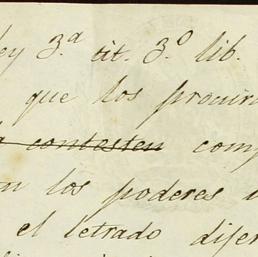 ley 3.ª tit. 3.º lib.
que los procura
contesten comp
los poderes
el letrado difer